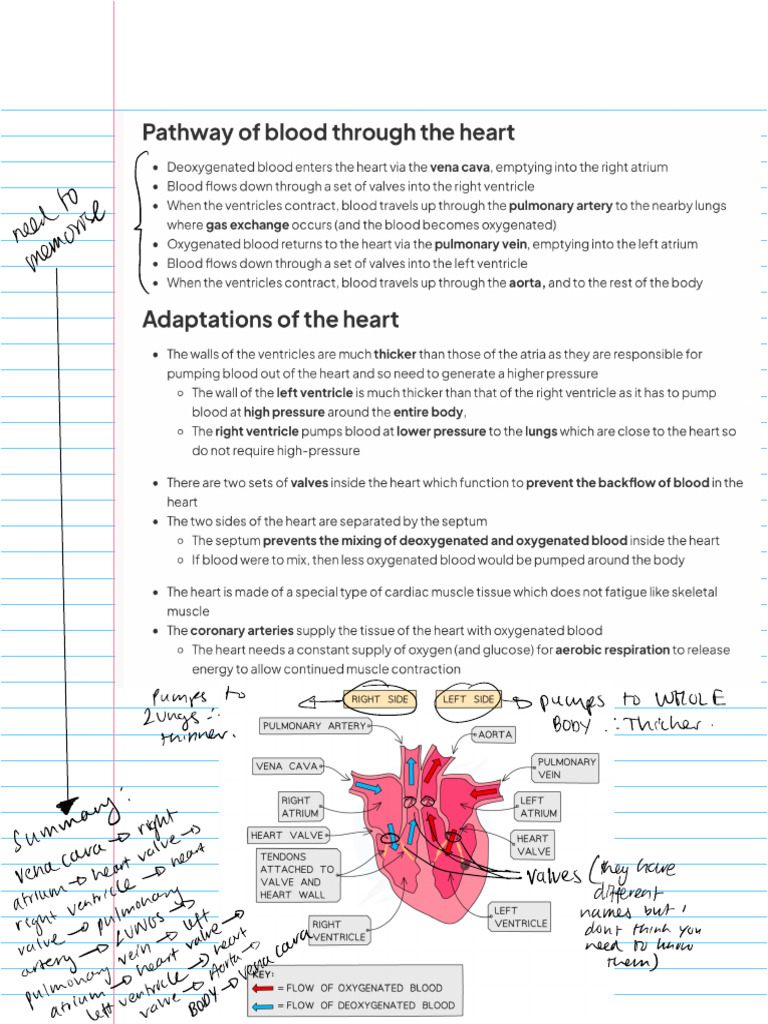 Pathway of blood through the heart
need to
memorise
• Deoxygenated blood enters the heart via the vena cava, emptying into the right atrium
• Blood flows down through a set of valves into the right ventricle
• When the ventricles contract, blood travels up through the pulmonary artery to the nearby lungs
where gas exchange occurs (and the blood becomes oxygenated)
• Oxygenated blood returns to the heart via the pulmonary vein, emptying into the left atrium
• Blood flows down through a set of valves into the left ventricle
• When the ventricles contract, blood travels up through the aorta, and to the rest of the body
Adaptations of the heart
• The walls of the ventricles are much thicker than those of the atria as they are responsible for
pumping blood out of the heart and so need to generate a higher pressure
○ The wall of the left ventricle is much thicker than that of the right ventricle as it has to pump
blood at high pressure around the entire body,
○ The right ventricle pumps blood at lower pressure to the lungs which are close to the heart so
do not require high-pressure
• There are two sets of valves inside the heart which function to prevent the backflow of blood in the
heart
• The two sides of the heart are separated by the septum
○ The septum prevents the mixing of deoxygenated and oxygenated blood inside the heart
○ If blood were to mix, then less oxygenated blood would be pumped around the body
• The heart is made of a special type of cardiac muscle tissue which does not fatigue like skeletal
muscle
• The coronary arteries supply the tissue of the heart with oxygenated blood
○ The heart needs a constant supply of oxygen (and glucose) for aerobic respiration to release
energy to allow continued muscle contraction
Pumps to
Lungs ∴
thinner.
RIGHT SIDE
LEFT SIDE
pumps to WHOLE
BODY ∴ Thicker.
PULMONARY ARTERY
AORTA
VENA CAVA
PULMONARY
VEIN
RIGHT
ATRIUM
LEFT
ATRIUM
HEART VALVE
HEART
VALVE
TENDONS
ATTACHED TO
VALVE AND
HEART WALL
RIGHT
VENTRICLE
LEFT
VENTRICLE
valves (they have
different
names but i
dont think you
need to know
them)
Summary:
vena cava → right
atrium → heart valve →
right ventricle → heart
valve → pulmonary
artery → LUNGS →
pulmonary vein → left
atrium → heart valve →
left ventricle → heart
valve → Aorta →
BODY → vena cava
KEY:
= FLOW OF OXYGENATED BLOOD
= FLOW OF DEOXYGENATED BLOOD